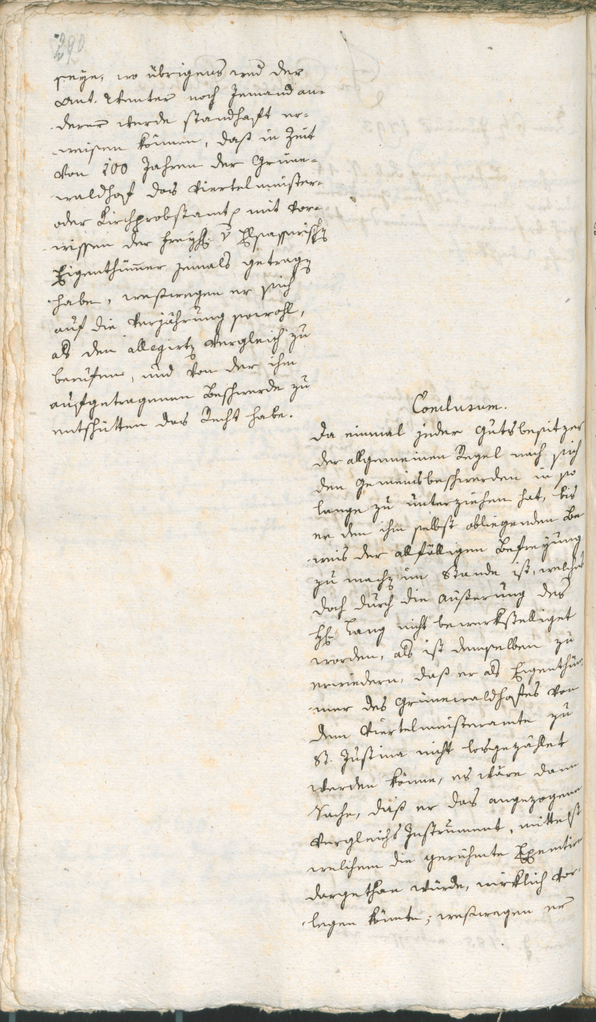 290.
seye, wo übrigens weder der
Ant. Winter noch Jemand an-
derer werde standhaft er-
weisen können, daß in Zeit
von 100 Jahren der Grüne-
waldhof das Viertelmeister-
oder Kirchprobstamt mit Vor-
wissen der
Eigenthümer jemals getragen
habe, weßwegen er sich
auf die Verjährung sowohl,
als den allegirten Vergleich zu
berufen, und von der ihm
aufgetragenen Beschwerde zu
entschütten das Recht habe.
Conclusum.
Da einmal jeder Gutsbesitzer
der allgemeinen Regel nach sich
den Gemeindsbeschwerden in so
lange zu unterziehen hat, bis
er den ihm selbst obliegenden Be-
weis der allfälligen Befreyung
zu machen im Stande ist, welches
doch durch die Äußerung des
H. Lang nicht bewerkstelliget
worden, als ist demselben zu
erwiedern, daß er als Eigenthü-
mer des Grünewaldhofes von
dem Viertelmeisteramte zu
St. Justina nicht losgezählet
werden könne, es wäre dann
Sache, daß er das angezogene
Vergleichs Instrument, mittelst
welchem die gerühmte Exemtion
dargethan würde, wirklich vor-
legen könnte; weßwegen er